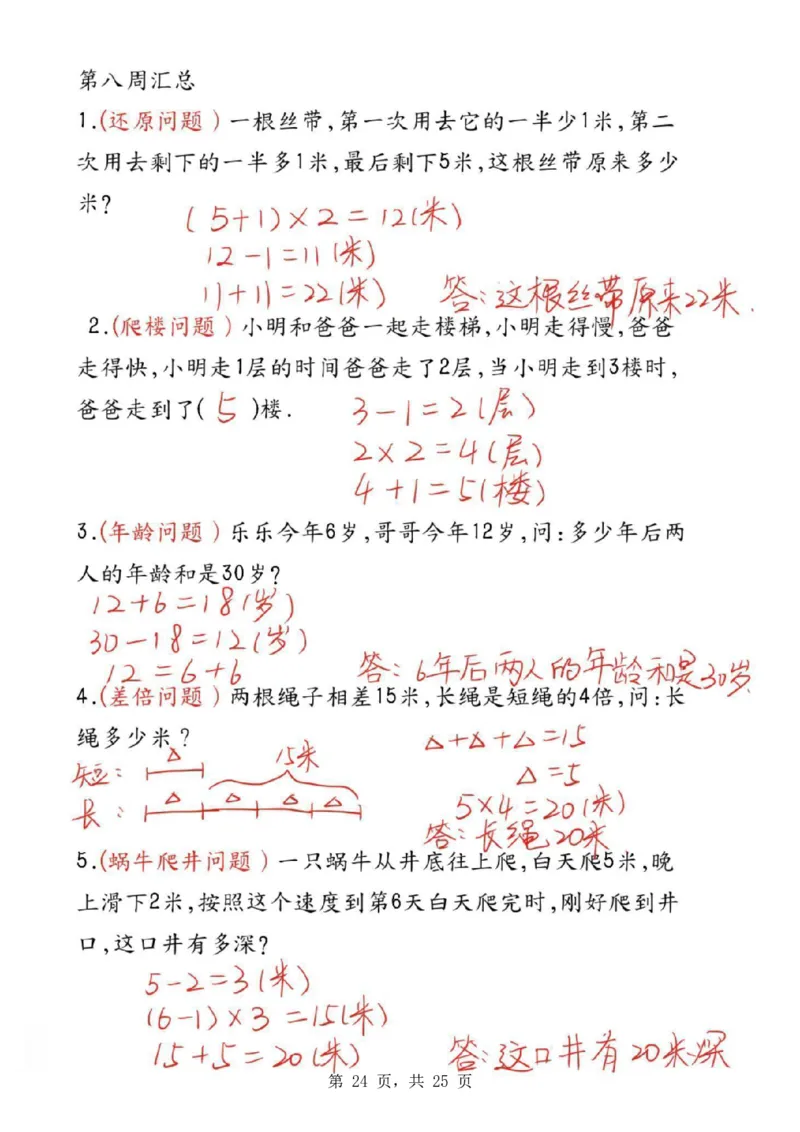 第八周汇总
1.(还原问题)一根丝带,第一次用去它的一半少1米,第二
次用去剩下的一半多1米,最后剩下5米,这根丝带原来多少
米?
(5+1)×2=12(米)
12-1=11(米)
11+11=22(米) 答:这根丝带原来22米.
2.(爬楼问题)小明和爸爸一起走楼梯,小明走得慢,爸爸
走得快,小明走1层的时间爸爸走了2层,当小明走到3楼时,
爸爸走到了( 5 )楼. 3-1=2(层)
2×2=4(层)
4+1=5(楼)
3.(年龄问题)乐乐今年6岁,哥哥今年12岁,问:多少年后两
人的年龄和是30岁?
12+6=18(岁)
30-18=12(岁)
12=6+6 答:6年后两人的年龄和是30岁
4.(差倍问题)两根绳子相差15米,长绳是短绳的4倍,问:长
绳多少米?
△+△+△=15
短: △ 15米
△=5
长: △ △ △ △
5×4=20(米)
答:长绳20米
5.(蜗牛爬井问题)一只蜗牛从井底往上爬,白天爬5米,晚
上滑下2米,按照这个速度到第6天白天爬完时,刚好爬到井
口,这口井有多深?
5-2=3(米)
(6-1)×3=15(米)
15+5=20(米) 答:这口井有20米深
第 24 页, 共 25 页